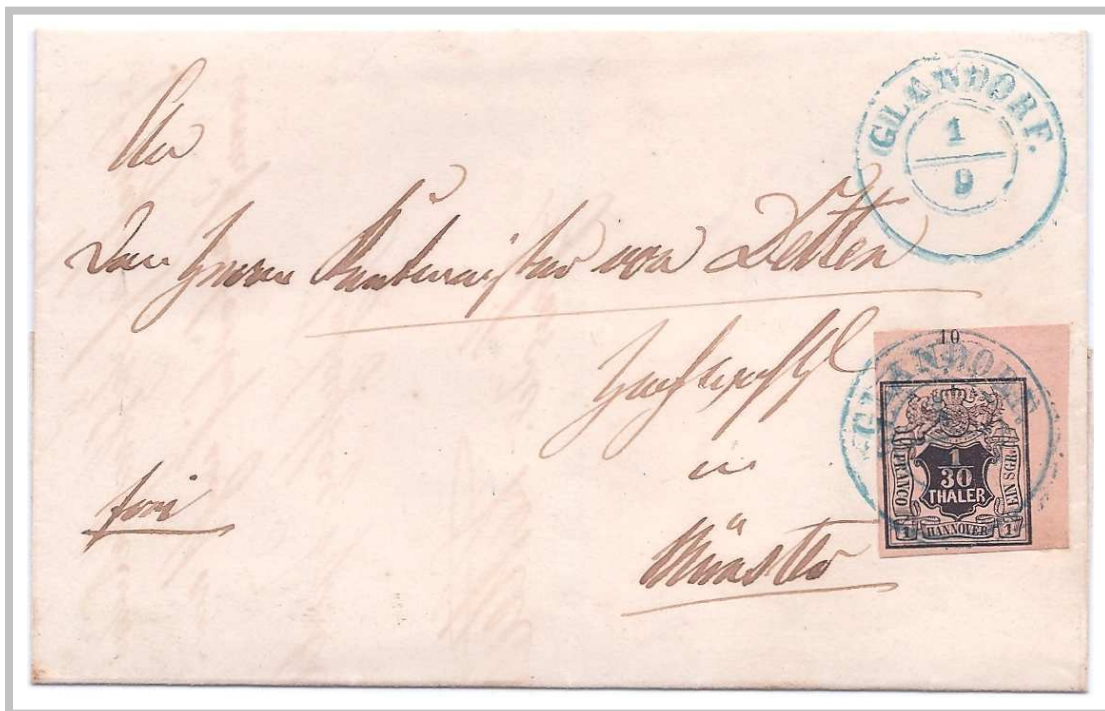 GLANDORF.
1
9
An
den Herrn Rentmeister von Detten
Hochwohl
in
Münster
frei
10
GLANDORF.
1
30
THALER
FRANCO
EIN SGR.
1 HANNOVER 1